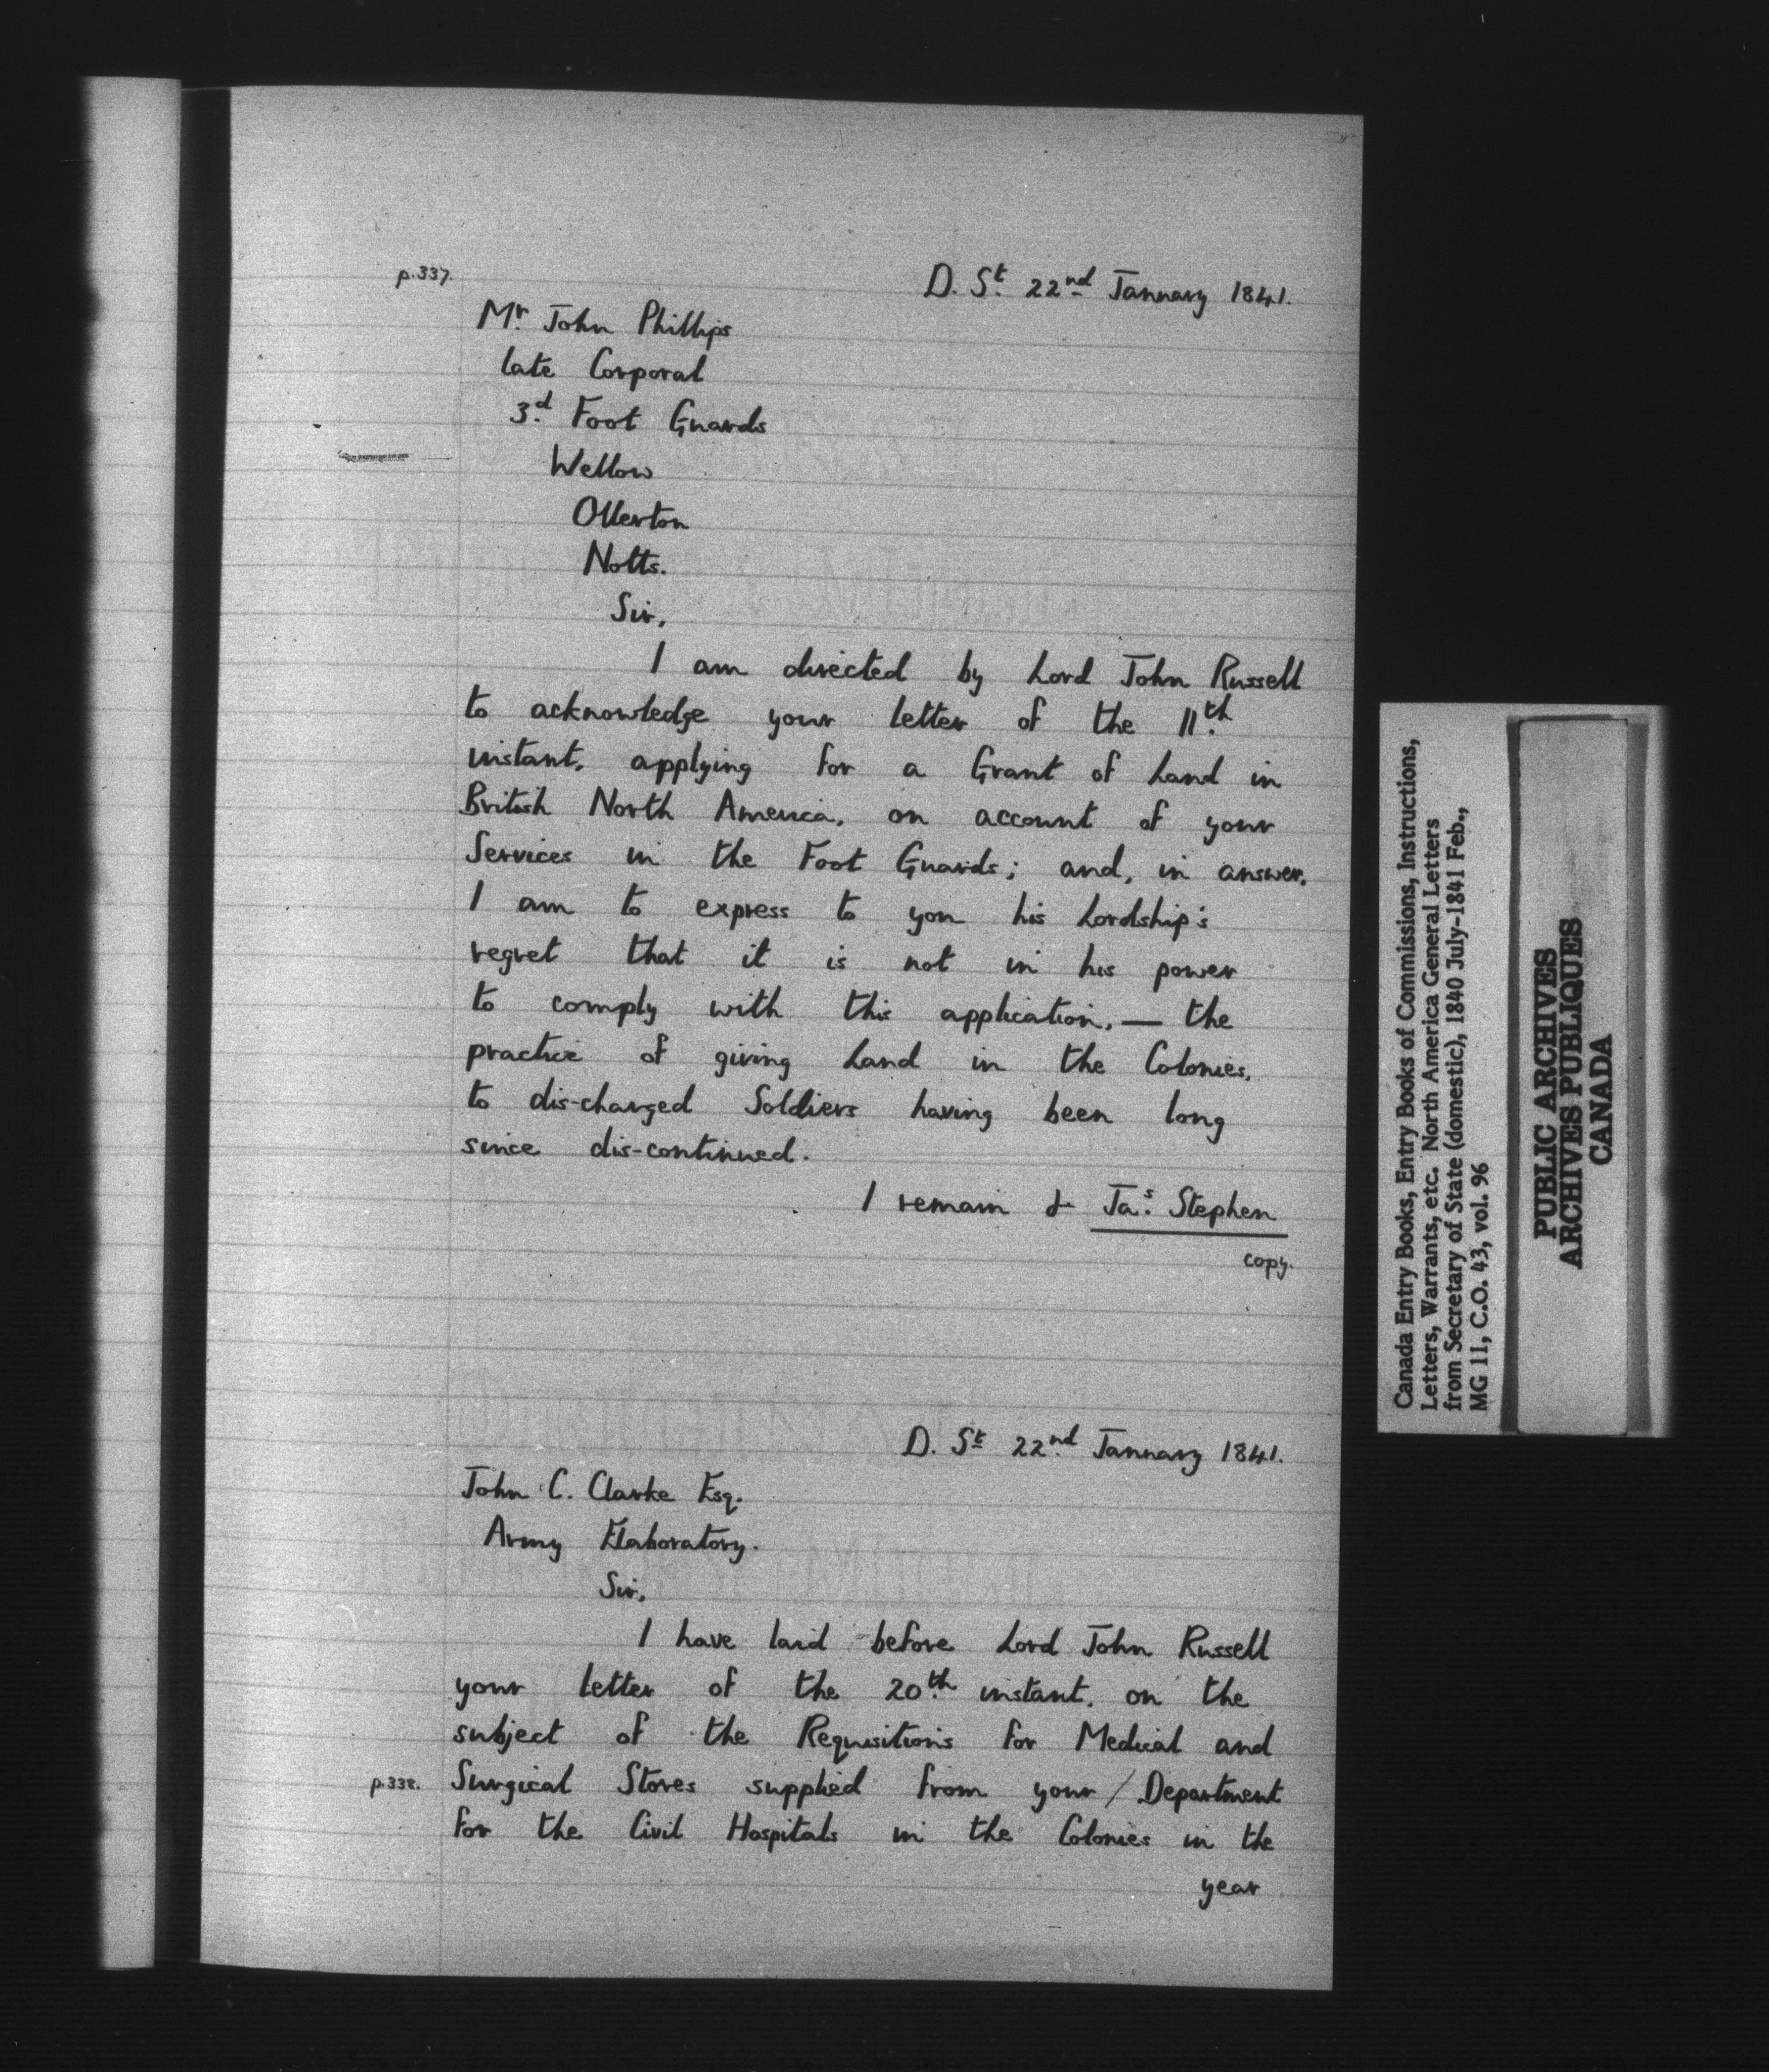 p.337.
D. St. 22nd January 1841.
Mr. John Phillips
late Corporal
3d. Foot Guards
Wellow
Ollerton
Notts.
Sir,
I am directed by Lord John Russell
to acknowledge your letter of the 11th.
instant, applying for a Grant of Land in
British North America, on account of your
Services in the Foot Guards; and, in answer,
I am to express to you his Lordship's
regret that it is not in his power
to comply with this application, — the
practice of giving Land in the Colonies,
to dis-charged Soldiers having been long
since dis-continued.
I remain & Jas. Stephen
copy.
D. St. 22nd. January 1841.
John C. Clarke Esq.
Army Elaboratory.
Sir,
I have laid before Lord John Russell
your letter of the 20th. instant, on the
subject of the Requisitions for Medical and
p.338. Surgical Stores supplied from your / Department
for the Civil Hospitals in the Colonies in the
year
Canada Entry Books, Entry Books of Commissions, Instructions,
Letters, Warrants, etc. North America General Letters
from Secretary of State (domestic), 1840 July-1841 Feb.,
MG 11, C.O. 43, vol. 96
PUBLIC ARCHIVES
ARCHIVES PUBLIQUES
CANADA